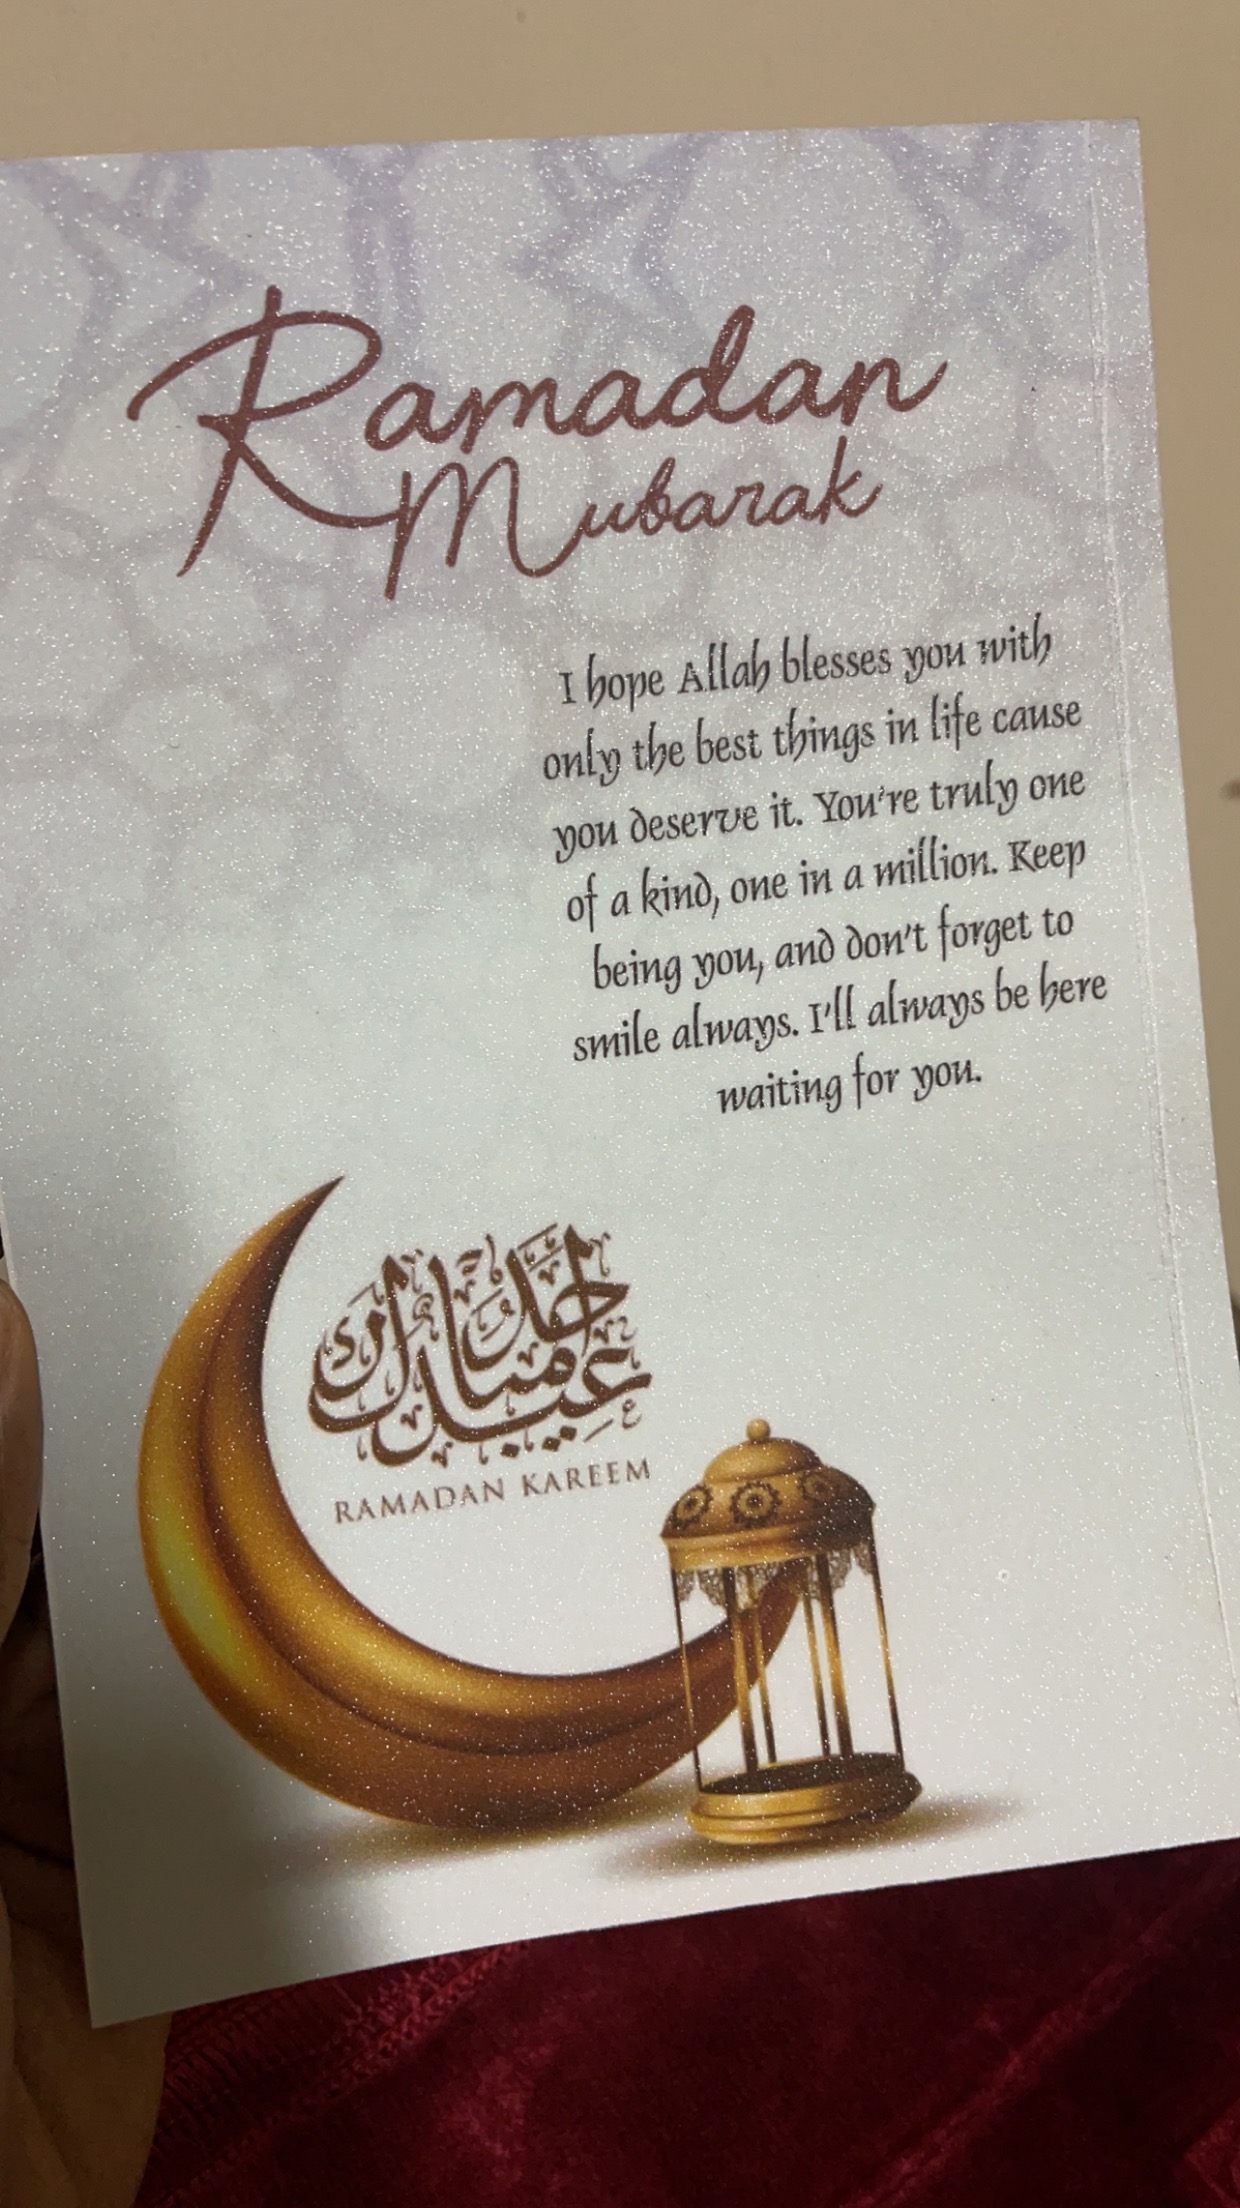 Ramadan
Mubarak
I hope Allah blesses you with
only the best things in life cause
you deserve it. You're truly one
of a kind, one in a million. Keep
being you, and don't forget to
smile always. I'll always be here
waiting for you.
عيد مبارك
RAMADAN KAREEM